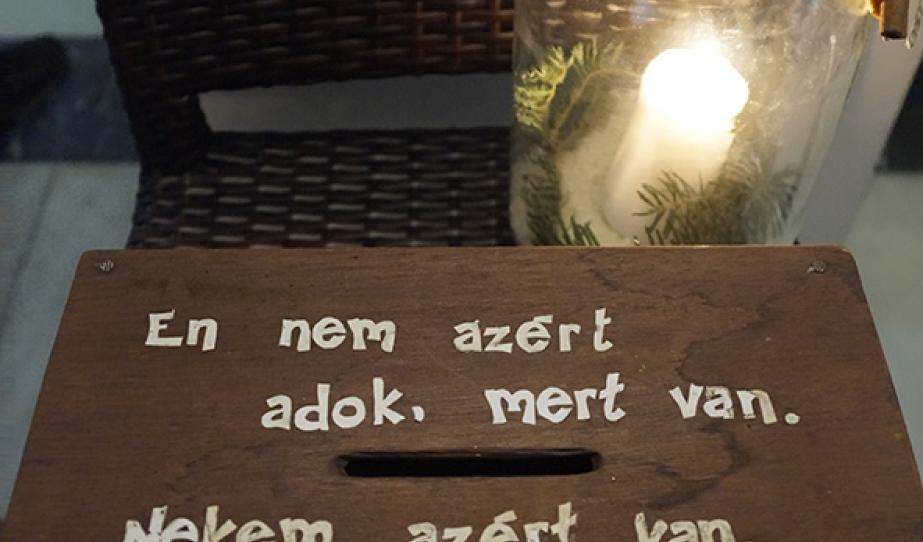 En nem azért
adok, mert van.
Nekem azért van